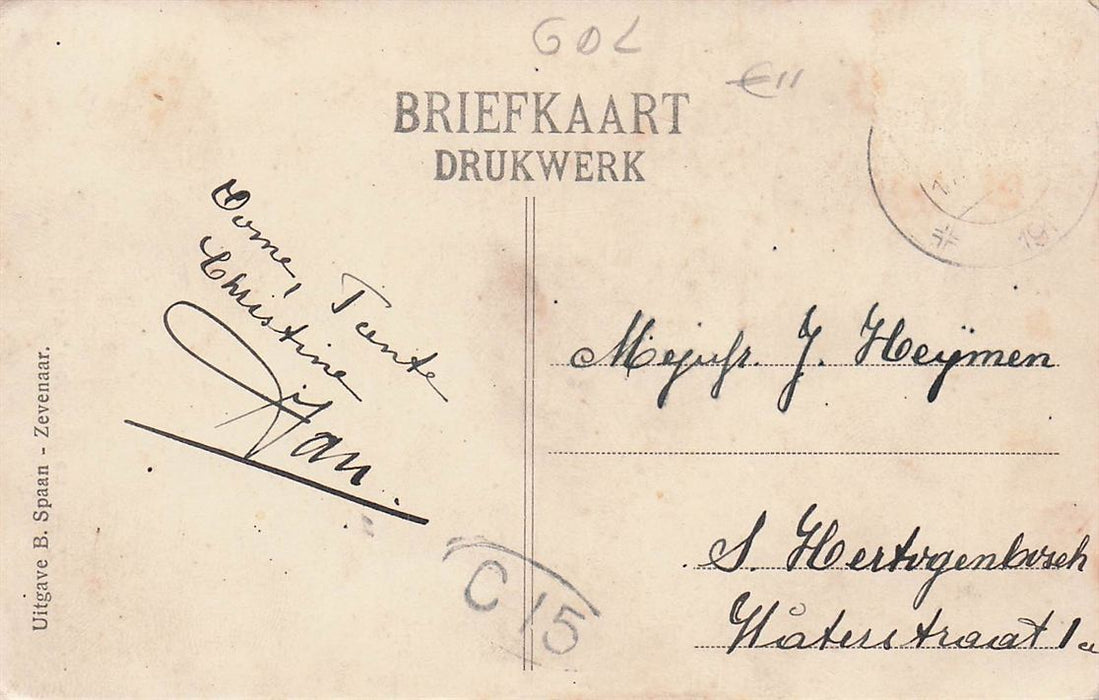 GOL
€11
BRIEFKAART
DRUKWERK
191
Oome, Tante
Christine
Jan.
Mejufr. J. Heÿmen
S. Hertogenbosch
Waterstraat 1a
C 15
Uitgave B. Spaan - Zevenaar.